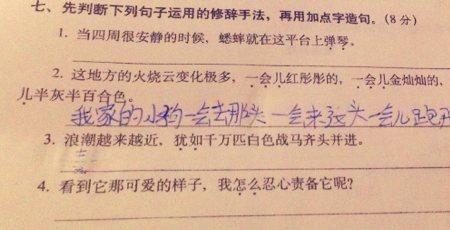 七、先判断下列句子运用的修辞手法，再用加点字造句。(8分)
1. 当四周很安静的时候、蟋蟀就在这平台上弹琴。
2. 这地方的火烧云变化极多，一会儿红彤彤的，一会儿金灿灿的、
儿半灰半百合色。
我家的小狗一会去那头 一会来这头 一会儿跑
3. 浪潮越来越近，犹如千万匹白色战马齐头并进。
4. 看到它那可爱的样子，我怎么忍心责备它呢?